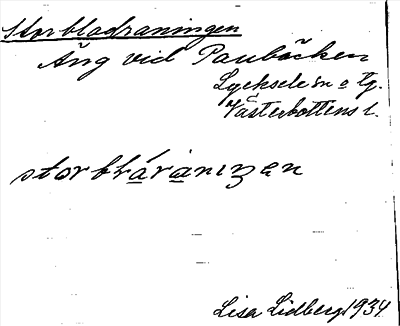 Storbladraningen
Äng vid Paubäcken
Lycksele sn o tg.
Västerbottens l.
storbláranıŋen
Lisa Lidberg 1934